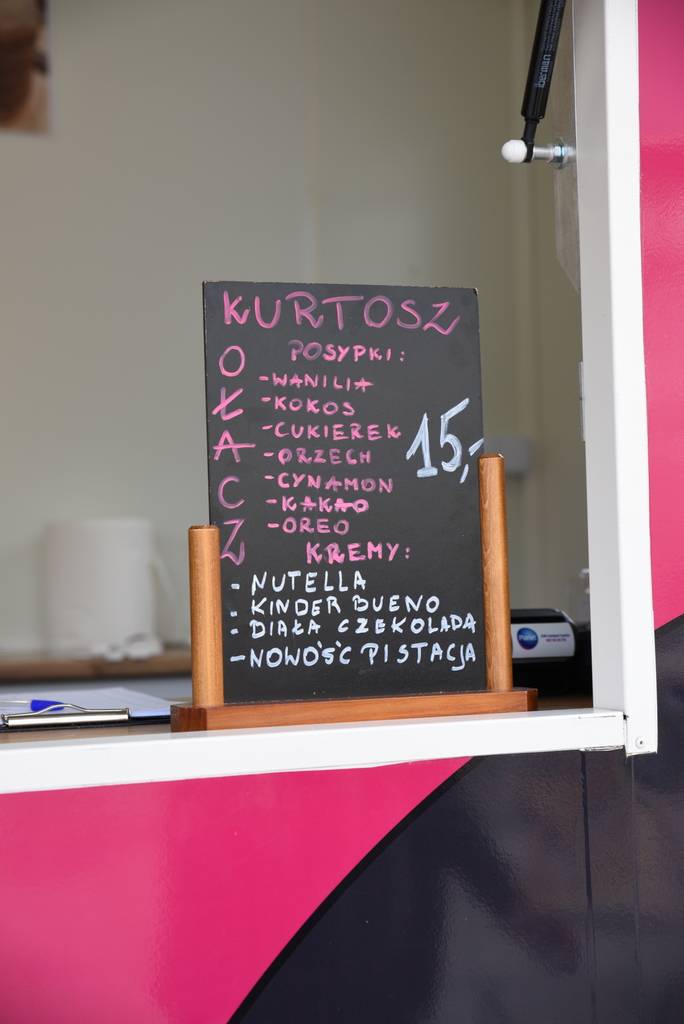 KURTOSZ
OŁACZ
POSYPKI:
-WANILIA
-KOKOS
-CUKIEREK
-ORZECH
-CYNAMON
-KAKAO
-OREO
15,-
KREMY:
- NUTELLA
- KINDER BUENO
- DIAŁA CZEKOLADA
-NOWOŚĆ PISTACJA
Planet